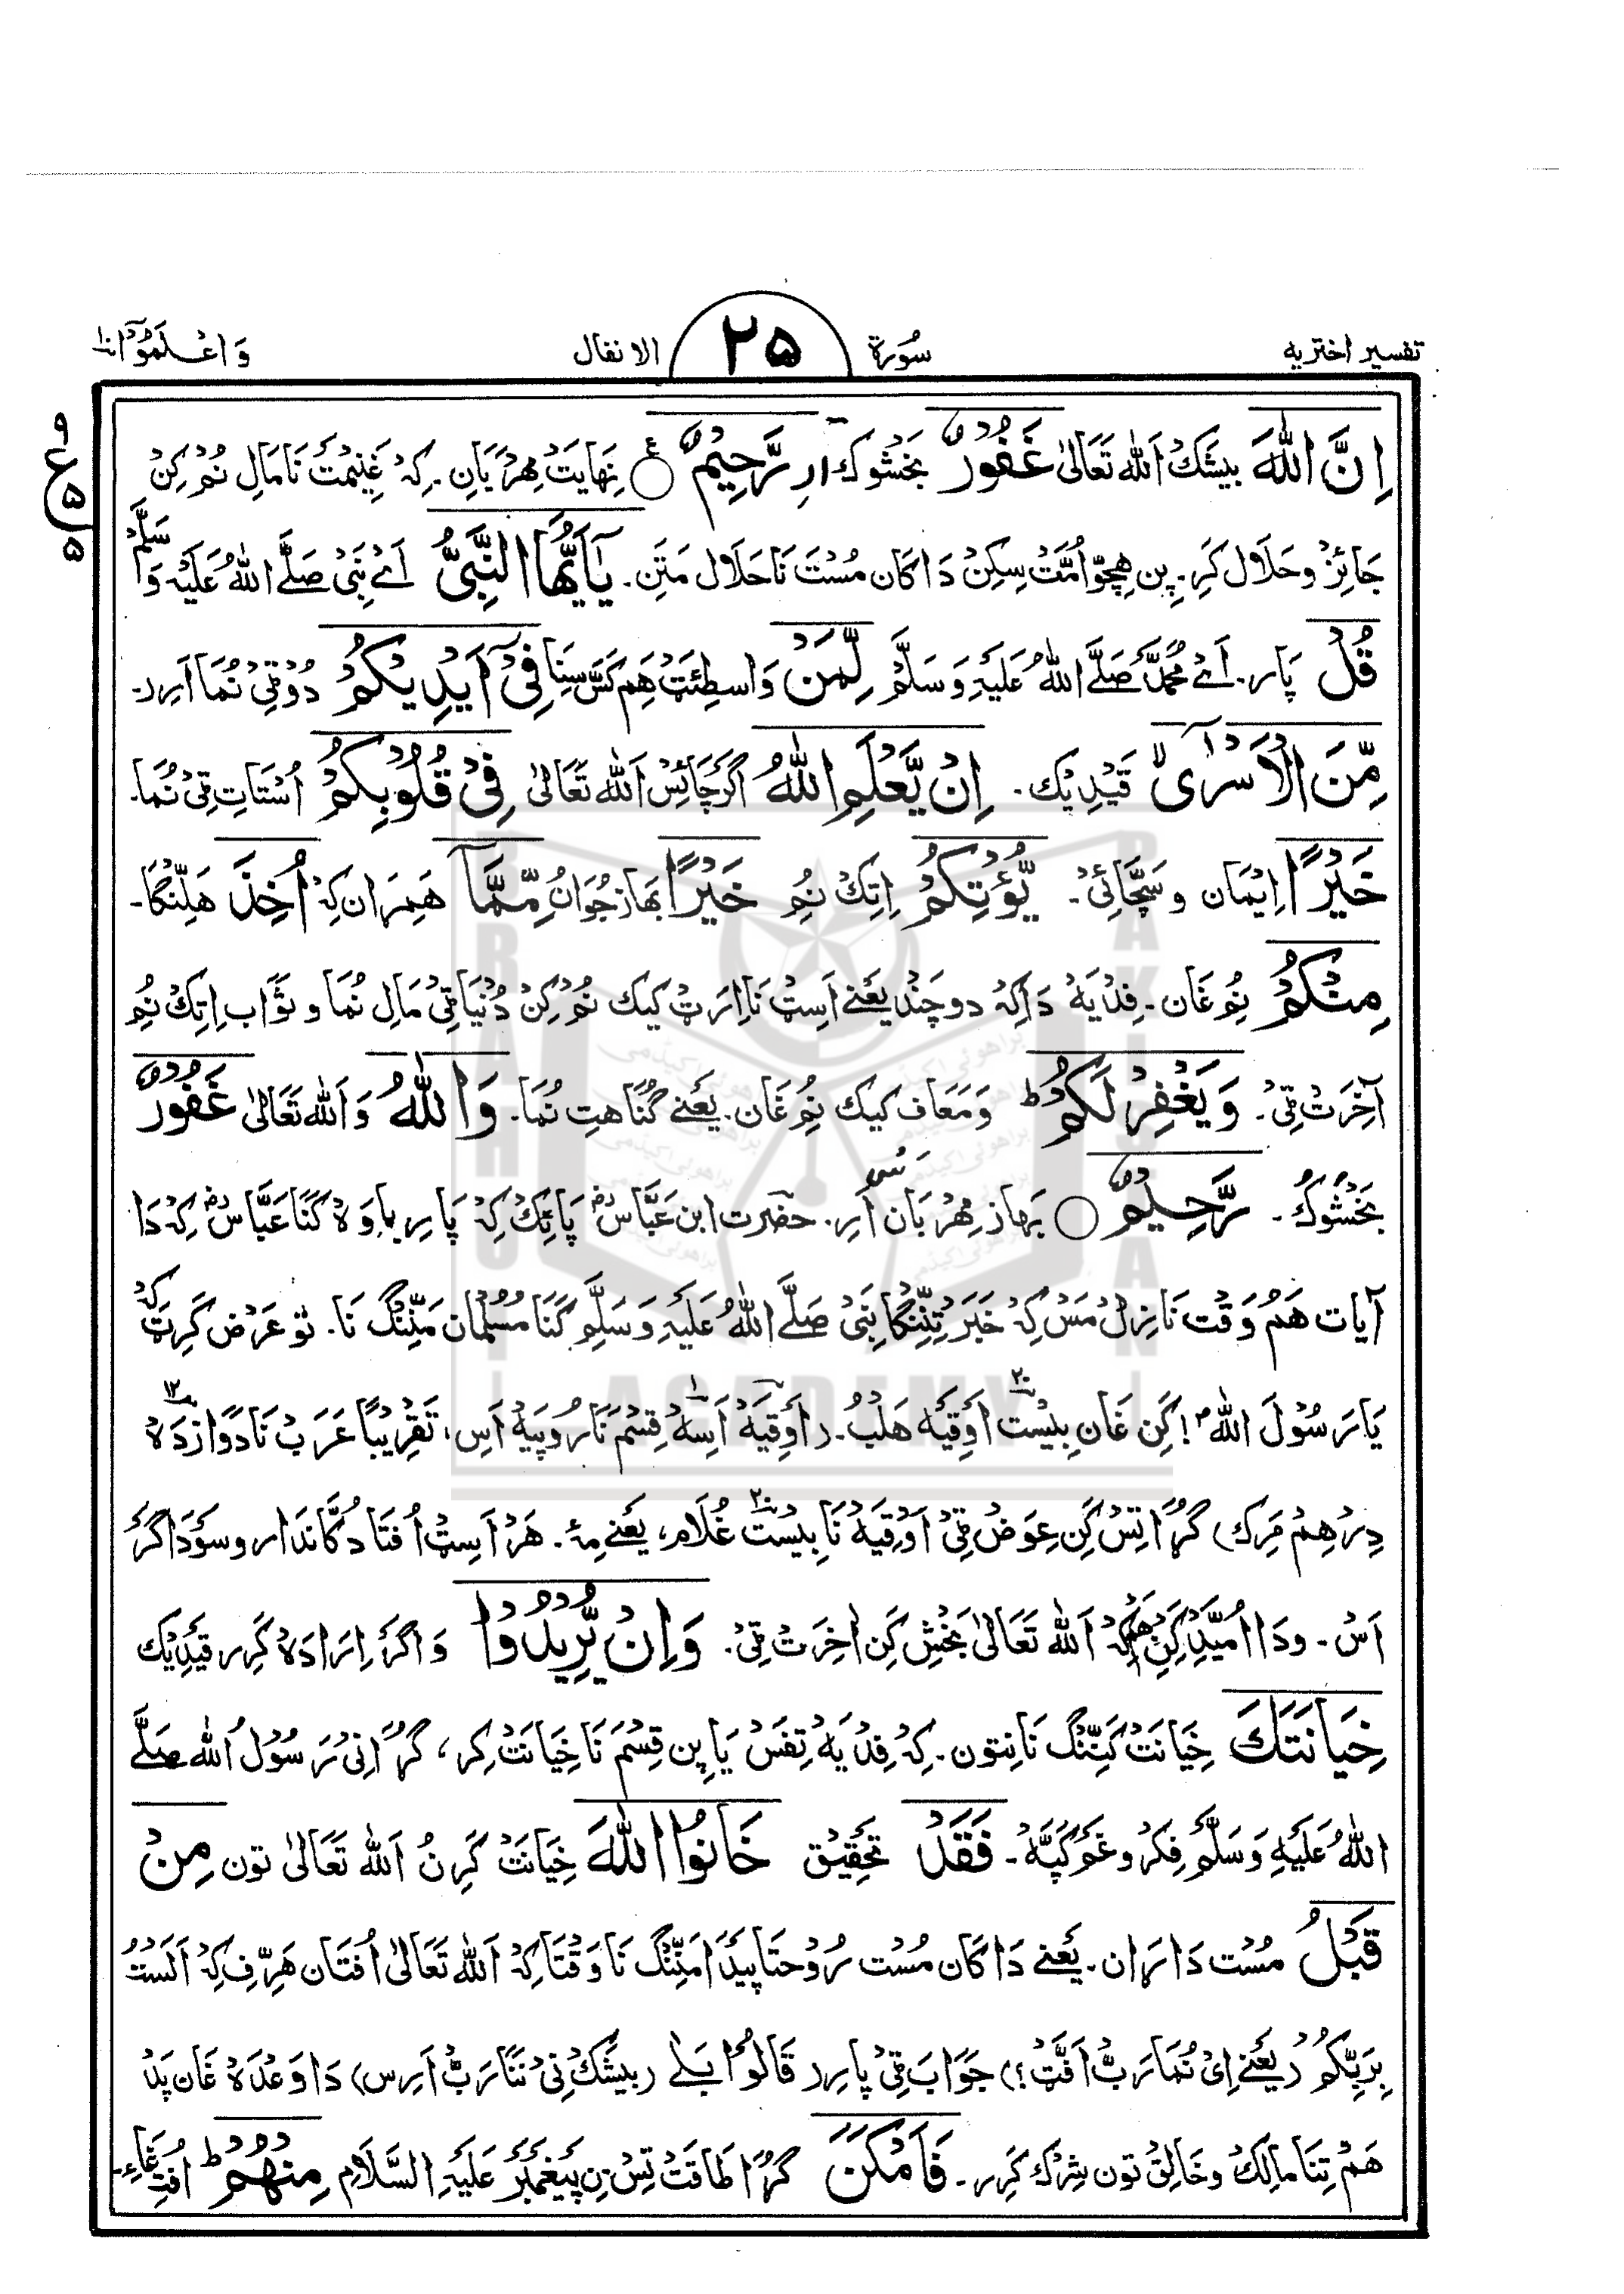 تفسیر اختریه سُورة ٢٥ الانفال وَاعْلَمُوْٓا ١٠
اِنَّ اللّٰهَ بیشَکْ اَللّٰه تَعَالیٰ غَفُوْرٌ بَخْشُوک اَرِ رَّحِیْمٌ ○ نِهَایَتْ مِهْرَبَان. کِهْ غَنِیْمَتْ نَا مَالِ نُمْ کِنْ
٩ ع ٥ ٥
جَائِزْ و حَلَال کَرِ. پِن هِچّو اُمَّتْ سِکِنْ دَاکَان مُسْتْ نَا حَلَال مَتَن. یٰٓاَیُّهَا النَّبِیُّ اَےْ نَبِیْ صَلَّے اللّٰهُ عَلَیْهِ وَ سَلَّم
قُلْ پَار. اَےْ مُحَمَّدْ صَلَّے اللّٰهُ عَلَیْهِ وَسَلَّمْ لِّمَنْ وَاسطِئَتْ هَم کَسْ سِنَا فِیْٓ اَیْدِیْکُمْ دُوْ ٹِیْ نُمَا اَرِر.
مِّنَ الْاَسْرٰٓی قَیْدِیْک. اِنْ یَّعْلَمِ اللّٰهُ اَگَرْ چَائِسْ اَللّٰه تَعَالیٰ فِیْ قُلُوْبِکُمْ اُسْتَاتِ ٹِیْ نُمَا.
خَیْرًا اِیْمَان و سَچَّائِیْ. یُّؤْتِکُمْ اِتِکْ نُمِ خَیْرًا بَهَازْ جُوَانْ مِّمَّآ هَمِرَان کِهْ اُخِذَ هَلِّنْگا.
مِنْکُمْ نُم غَان. فِدْیَهْ دَا کِهْ دو چَنْد یَعْنے اَسِٹ نَا اِرَٹ کیک نُمْ کِنْ دُنْیَا ٹِیْ مَالِ نُمَا و ثَوَاب اِتِکْ نُمِ
آخِرَتْ ٹِیْ. وَیَغْفِرْ لَکُمْ ط وَمَعَاف کیک نُم غَان. یَعْنے گُنَاهتِ نُمَا. وَاللّٰهُ وَاَللّٰه تَعَالیٰ غَفُوْرٌ
بَخْشُوکْ. رَّحِیْمٌ ○ بَهَاز مِهْرَبَان اَرِ. حضرت ابن عَبَّاسْ پَائِکْ کِهْ پَارِ بَاوَه کَنَا عَبَّاسْ کِهْ دَا
آیات هَمُ وَقْت نَازِلْ مَسْ کِهْ خَبَر تِنِّنْگَا نَبِیْ صَلَّے اللّٰهُ عَلَیْهِ وَسَلَّمْ کَنَا مُسْلِمَان مَنِّنْگ نَا. تو عَرْض کَرِٹ کِهْ
یَارَسُوْلَ اللّٰه! کَنْ غَان بِیْسْت ٢٠ اَوْقِیَه هَلْبُ. (اَوْقِیَهْ اَسِهْ ١ قِسْم نَا رُوپَیَه اَس، تَقْرِیْبًا عَرَبْ نَا دَوَازْدَه ١٢
دِرْهِمْ مَرِک) گُڑَا تِسْ کَنْ عِوَضْ ٹِیْ اَوْقِیَهْ نَا بِیْسْت ٢٠ غُلَام، یَعْنے مِهْ. هَرْ اَسِٹْ اُفْتَا دُکَانْدَار و سَوْدَاگَر
اَسْ. و دَا اُمِیْد کَنْ هَم کِهْ اَللّٰه تَعَالیٰ بَخْشِ کَن اٰخِرَتْ ٹِیْ. وَاِنْ یُّرِیْدُوْا وَاگَرْ اِرَادَه کَرِر قَیْدِیْک
خِیَانَتَکَ خِیَانَتْ کَنِّنْگ نَا نِتون. کِهْ فِدْیَهْ تِفَسْ یَا پِن قِسْم نَا خِیَانَتْ کِر، گُڑَا نِیْ رَسُوْلُ اللّٰه صَلَّے
اللّٰهُ عَلَیْهِ وَسَلَّم فِکْر و غَم کَپَهْ. فَقَدْ تَحْقِیْق خَانُوا اللّٰهَ خِیَانَتْ کَرِنُ اَللّٰه تَعَالیٰ تون مِنْ
قَبْلُ مُسْت دَارَان. یَعْنے دَاکَان مُسْت رُوْحتَا پَیْدَا مَنِّنْگ نَا وَقْتَا کِهْ اَللّٰه تَعَالیٰ اُفْتَان هَرِّف کِهْ اَلَسْتُ
بِرَبِّکُمْ (یَعْنے اِیْ نُمَا رَبْ اَفَّٹ؟) جَوَابْ ٹِیْ پارِر قَالُوْا بَلٰے (بیشَکْ نِیْ نَنَا رَبْ اَرِس) دَا وَعْدَه غَان پَدْ
هَمْ تِنَا مَالِکْ و خَالِقْ تون شِرْک کَرِر. فَاَمْکَنَ گُڑَا طَاقَتْ تِسْ نِ پَیْغَمْبَر عَلَیْهِ السَّلَام مِنْهُمْ ط اُفْتِ غَاءِ.